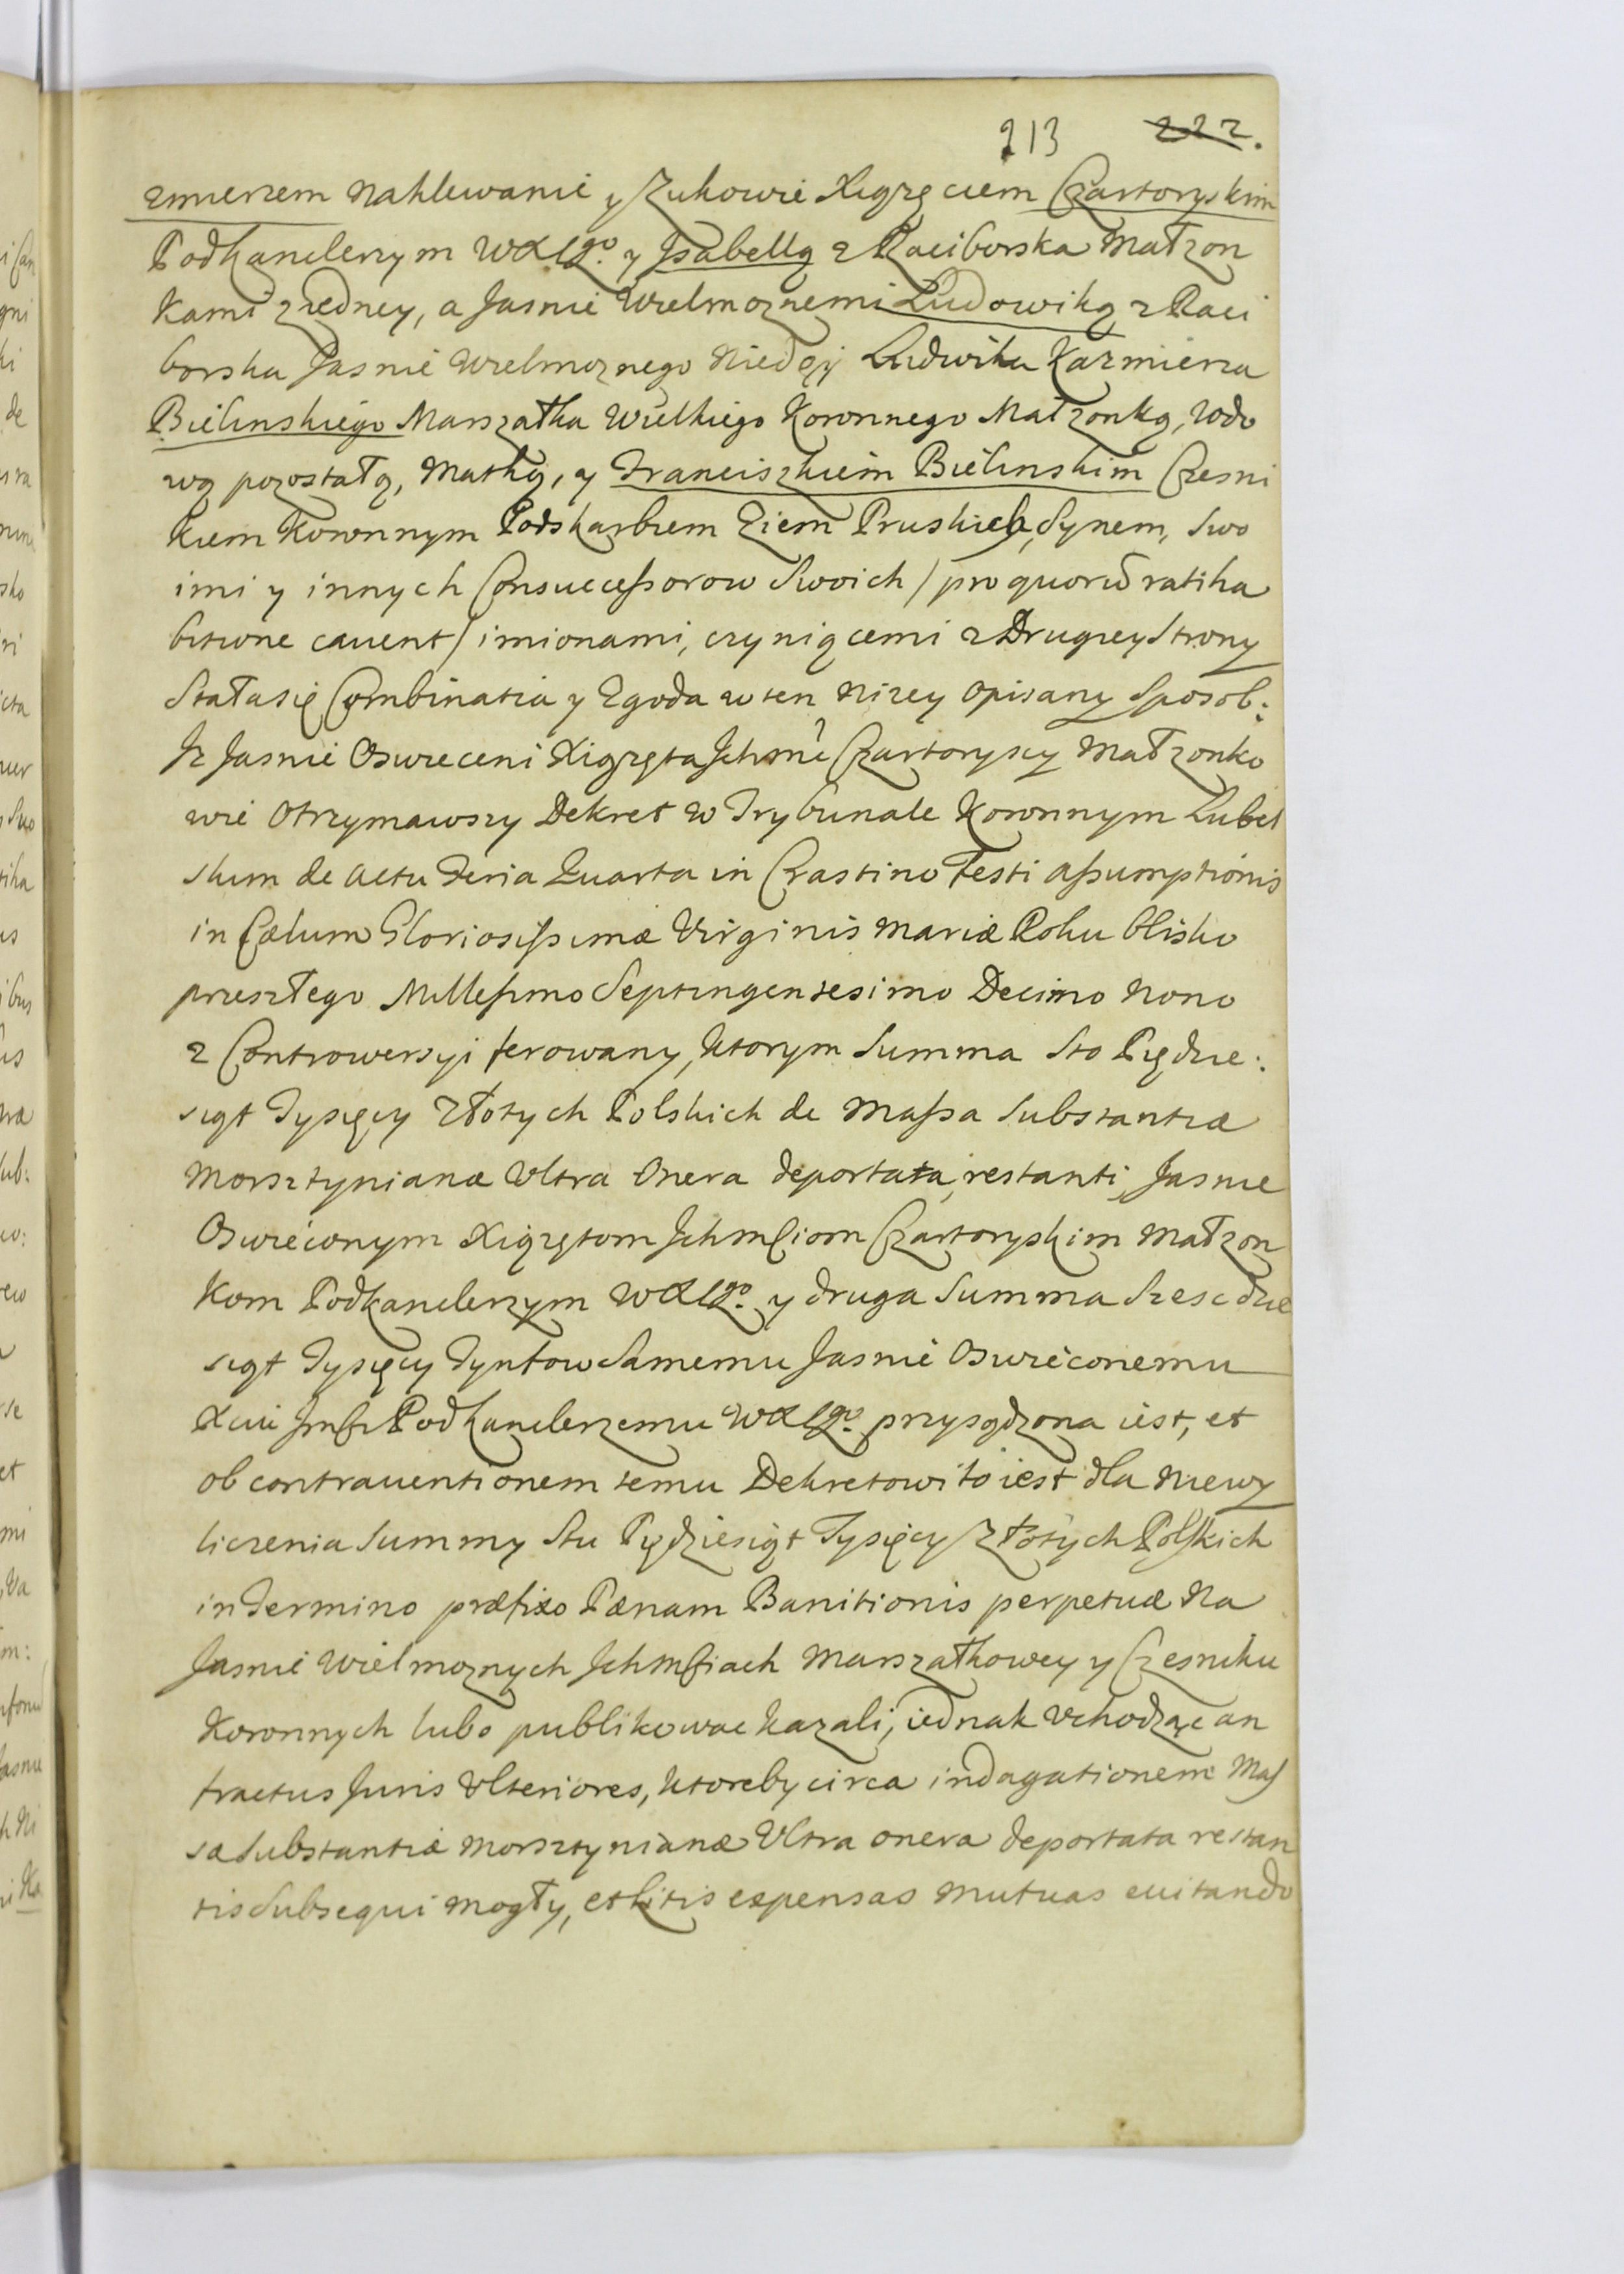 213 222.
zmierzem Na Klewanie y Zukowie Xiązęciem Czartoryskim
Podkanclerzym WXLgo. y Jsabellą z Raciborska Małzon
kami z iedney, a Jasnie Wielmoznemi Ludowiką z Raci
borska Jasnie Wielmoznego Niedỹ Ludwika Kazmierza
Bielinskiego Marszałka Wielkiego Koronnego Małzonką, Wdo
wą pozostałą, Matką, y Franciszkiem Bielinskim Czesni
kiem Koronnym Podskarbiem Ziem Pruskich, Synem, Swo
imi y innych Consuccessorow Swoich / pro quorū ratiha
bitione cavent / imionami, czyniącemi z Drugiey Strony
Stałasię Combinatia y Zgoda w ten nizey opisany Sposob:
Jz Jasnie Oswieceni Xiązęta Jchmć Czartoryscy Małzonko
wie Otrzymawszy Dekret w Trybunale Koronnym Lubel
skim de Actu Feria Quarta in Crastino Festi Assumptionis
in Cælum Gloriosissimæ Virginis Mariæ Roku blisko
przeszłego Millesimo Septingentesimo Decimo Nono
z Controwersyi ferowany, ktorym Summa Sto Piędzie:
siąt Tysięcy Złotych Polskich de Massa Substantiæ
Morsztynianæ Ultra Onera deportata, restanti, Jasnie
Oswieconym Xiązętom Jchmściom Czartoryskim Małzon
kom Podkanclerzym WXLgo. y druga Summa Szescdzie
siąt Tysięcy Tynfow Samemu Jasnie Oswieconemu
Xciu Jmści Podkanclerzemu WXLgo. przysądzona iest, et
ob contraventionem temu Dekretowi to iest dla Niewy
liczenia Summy Stu Piędziesiąt Tysięcy Złotych Polskich
in Termino præfixo Pænam Banitionis perpetuæ Na
Jasnie Wielmoznych Jchmściach Marszałkowey y Czesniku
Koronnych lubo publikowac kazali, iednak Uchodząc an
fractus Juris Ulteriores, ktoreby circa indagationem Mas
sæ Substantiæ Morsztynianæ Ultra onera deportata restan
tis Subsequi mogły, et Litis expensas mutuas evitando